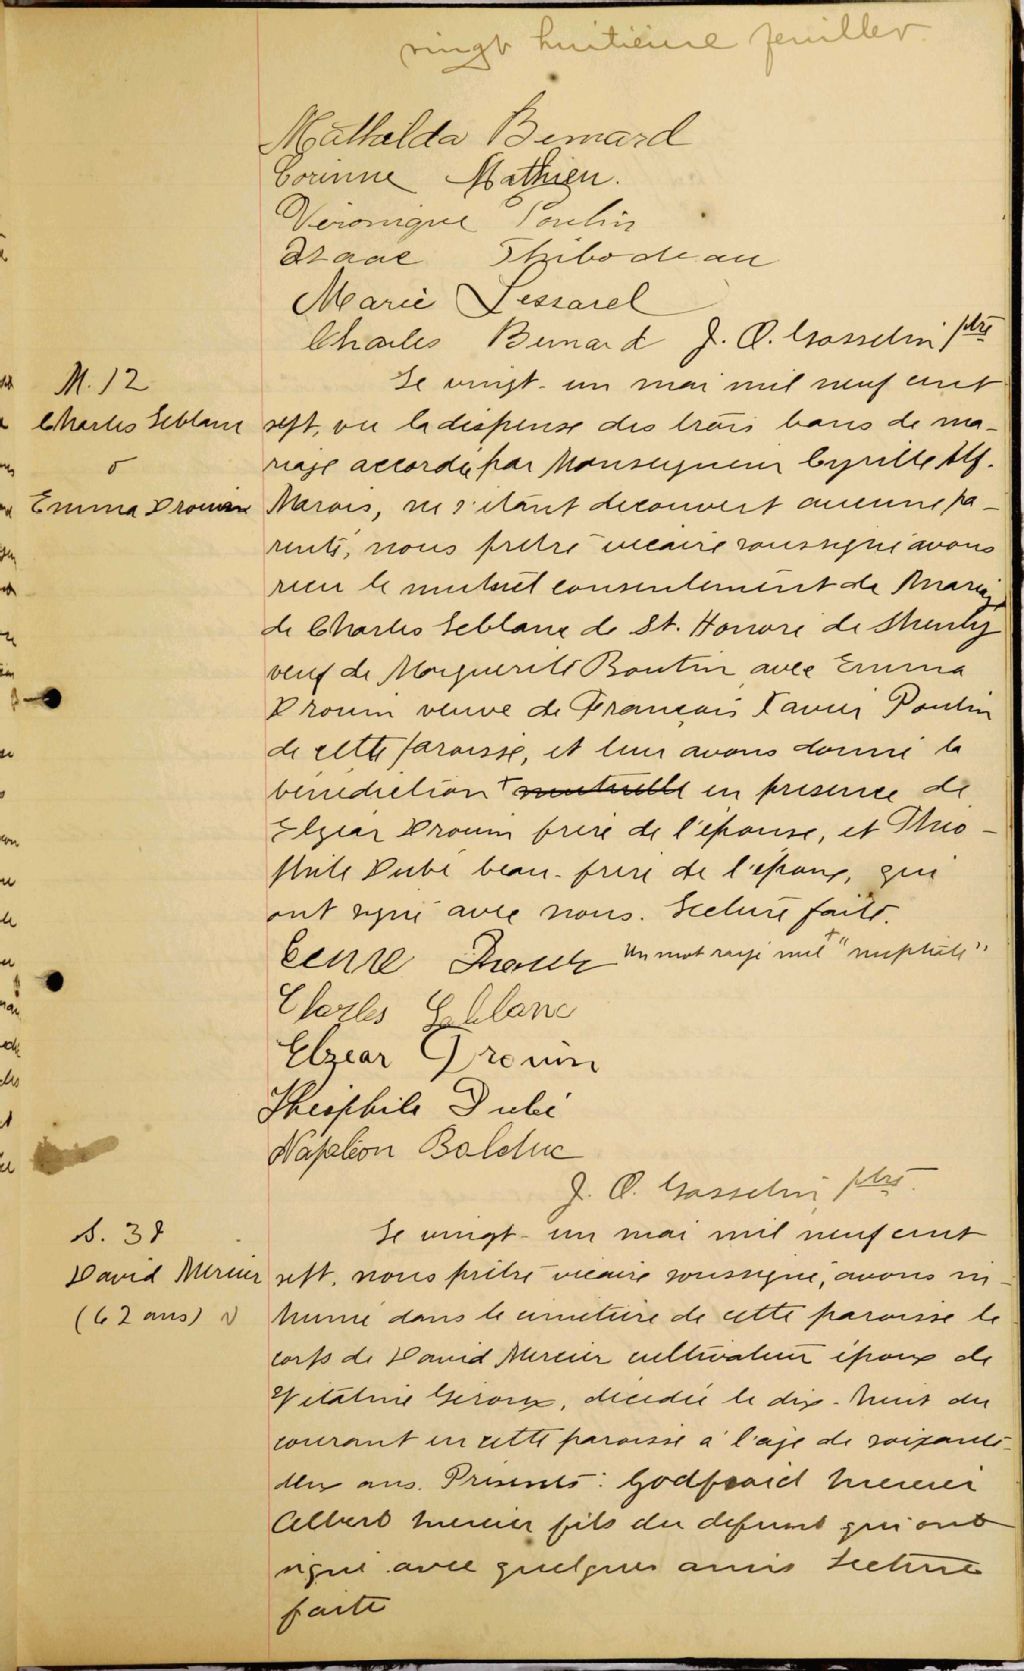 vingt huitième feuillet.
Mathilda Bernard
Corinne Mathieu.
Véronique Poulin
Isaac Thibodeau
Marie Lessard
Charles Bernard J. O. Gosselin ptre
M. 12
Charles Leblanc
&
Emma Drouin
Le vingt-un mai mil neuf cent
sept, vu la dispense des trois bans de ma-
riage accordée par Monseigneur Cyrille Alf.
Marois, ne s'étant decouvert aucune pa-
renté, nous prêtre vicaire soussigné avons
recu le mutuel consentement de mariage
de Charles Leblanc de St. Honoré de Shenly
veuf de Marguerite Boutin avec Emma
Drouin veuve de François Xavier Poulin
de cette paroisse, et leur avons donné la
bénédiction + mutuelle en présence de
Elzéar Drouin frère de l'épouse, et Théo-
phile Dubé beau-frère de l'époux, qui
ont signé avec nous. Lecture faite.
Un mot rayé nul + "nuptiale"
Charles Leblanc
Elzear Drouin
Théophile Dubé
Napoléon Bolduc
J. O. Gosselin, ptre.
S. 38
David Mercier
(62 ans)
Le vingt-un mai mil neuf cent
sept, nous prêtre vicaire soussigné, avons in-
humé dans le cimetière de cette paroisse le
corps de David Mercier cultivateur époux de
Vitaline Giroux, décédée le dix-huit du
courant en cette paroisse à l'age de soixante-
deux ans. Présents: Godfroid Mercier
Albert Mercier fils du defunt qui ont
signé avec quelques amis Lecture
faite